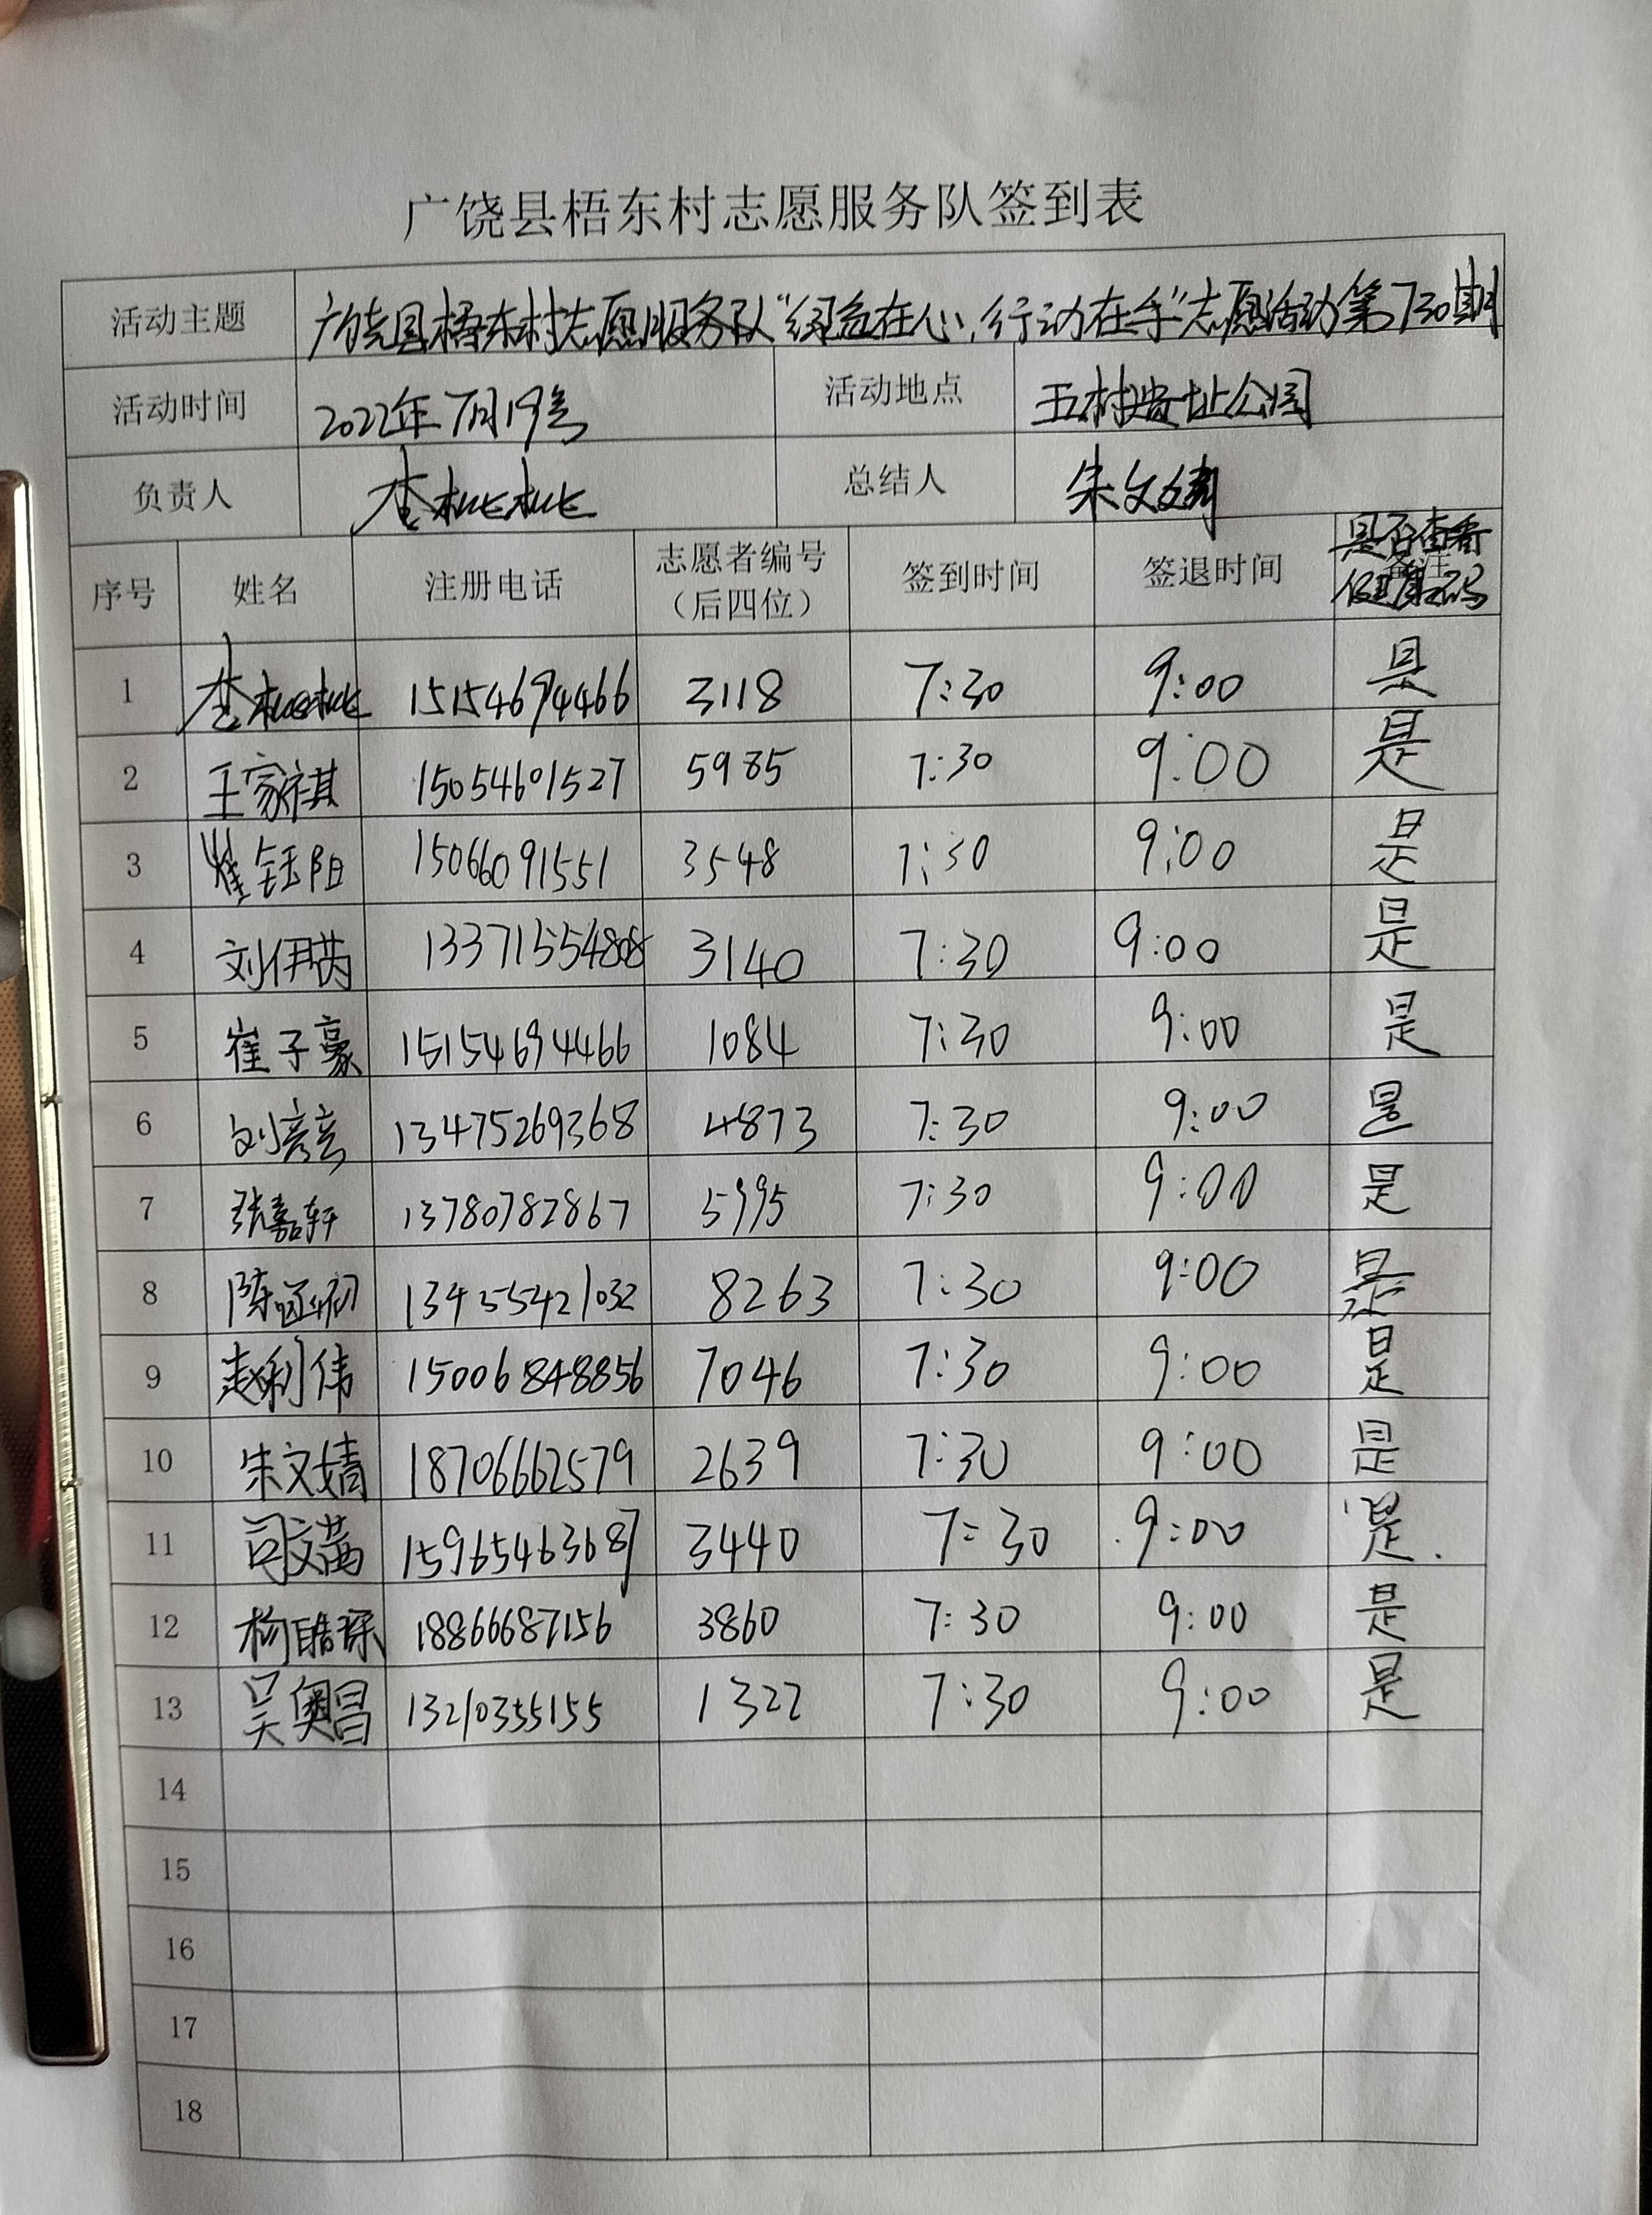 广饶县梧东村志愿服务队签到表
活动主题 广饶县梧东村志愿服务队“绿益在心,行动在手”志愿活动第730期
活动时间 2022年7月19号 活动地点 五村遗址公园
负责人 李桃桃 总结人 朱文婧
序号 姓名 注册电话 志愿者编号(后四位) 签到时间 签退时间 是否查看健康码
1 李桃桃 15154694466 3118 7:30 9:00 是
2 王家祺 15054601527 5985 7:30 9:00 是
3 崔钰阳 15066091551 3548 7:30 9:00 是
4 刘伊芮 13371554808 3140 7:30 9:00 是
5 崔子豪 15154694466 1084 7:30 9:00 是
6 刘彦言 13475269368 4873 7:30 9:00 是
7 张嘉轩 13780782867 5995 7:30 9:00 是
8 陈 13455421032 8263 7:30 9:00 是
9 赵利伟 15006848856 7046 7:30 9:00 是
10 朱文婧 18706662579 2639 7:30 9:00 是
11 司文 15965463687 3440 7:30 9:00 是
12 杨皓琛 18866687156 3860 7:30 9:00 是
13 吴奥昌 13210355155 1322 7:30 9:00 是
14
15
16
17
18